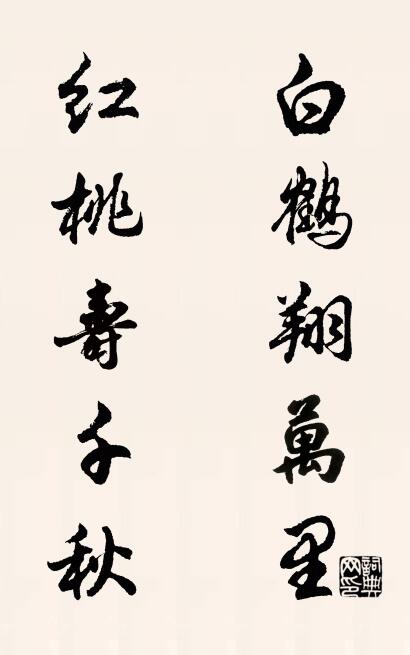 白鶴翔萬里
红桃壽千秋
詞典网印